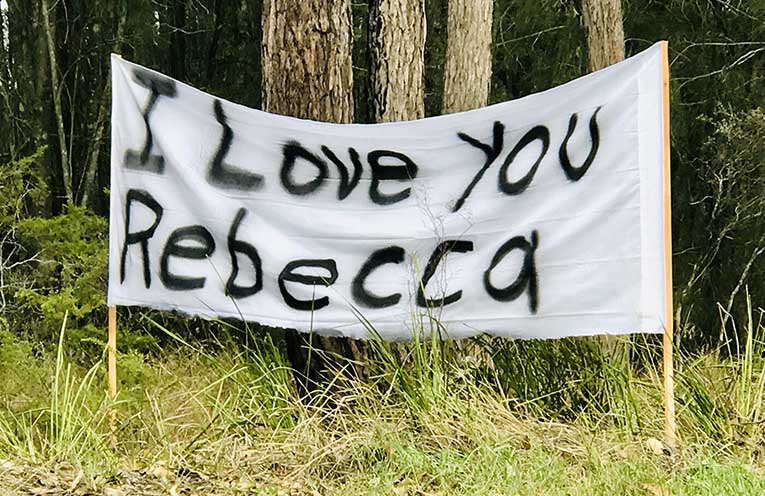 I Love You
Rebecca